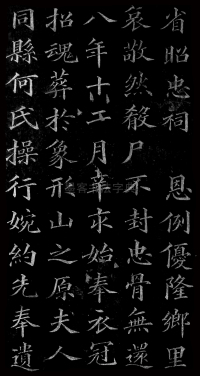 省昭忠祠　恩例優隆鄉里
哀敬然殽尸不封忠骨無還
八年十二月辛亥始奉衣冠
招魂葬於象形山之原夫人
同縣何氏操行婉約先奉遺